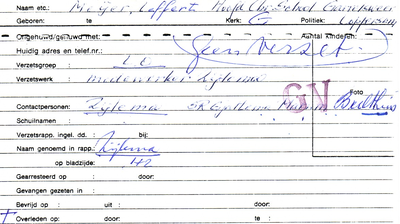 Naam etc.: Meijer, Loffert Hoofd Chr. School Garrelsweer
Geboren: te Kerk: G Politiek: Loppersum
Ongehuwd/gehuwd met: Aantal kinderen:
Huidig adres en telef.nr.: Geen verzet.
Verzetsgroep : LO
Verzetswerk : medewerker Zijlema
Contactpersonen: Zijlema
GN
Foto
Schuilnaam :
Verzetsrapp. ingel. dd. : bij:
Naam genoemd in rapp.: Zijlema
op bladzijde: 42
Gearresteerd op : door:
Gevangen gezeten in :
Bevrijd op : uit : door:
† Overleden op: door: te :